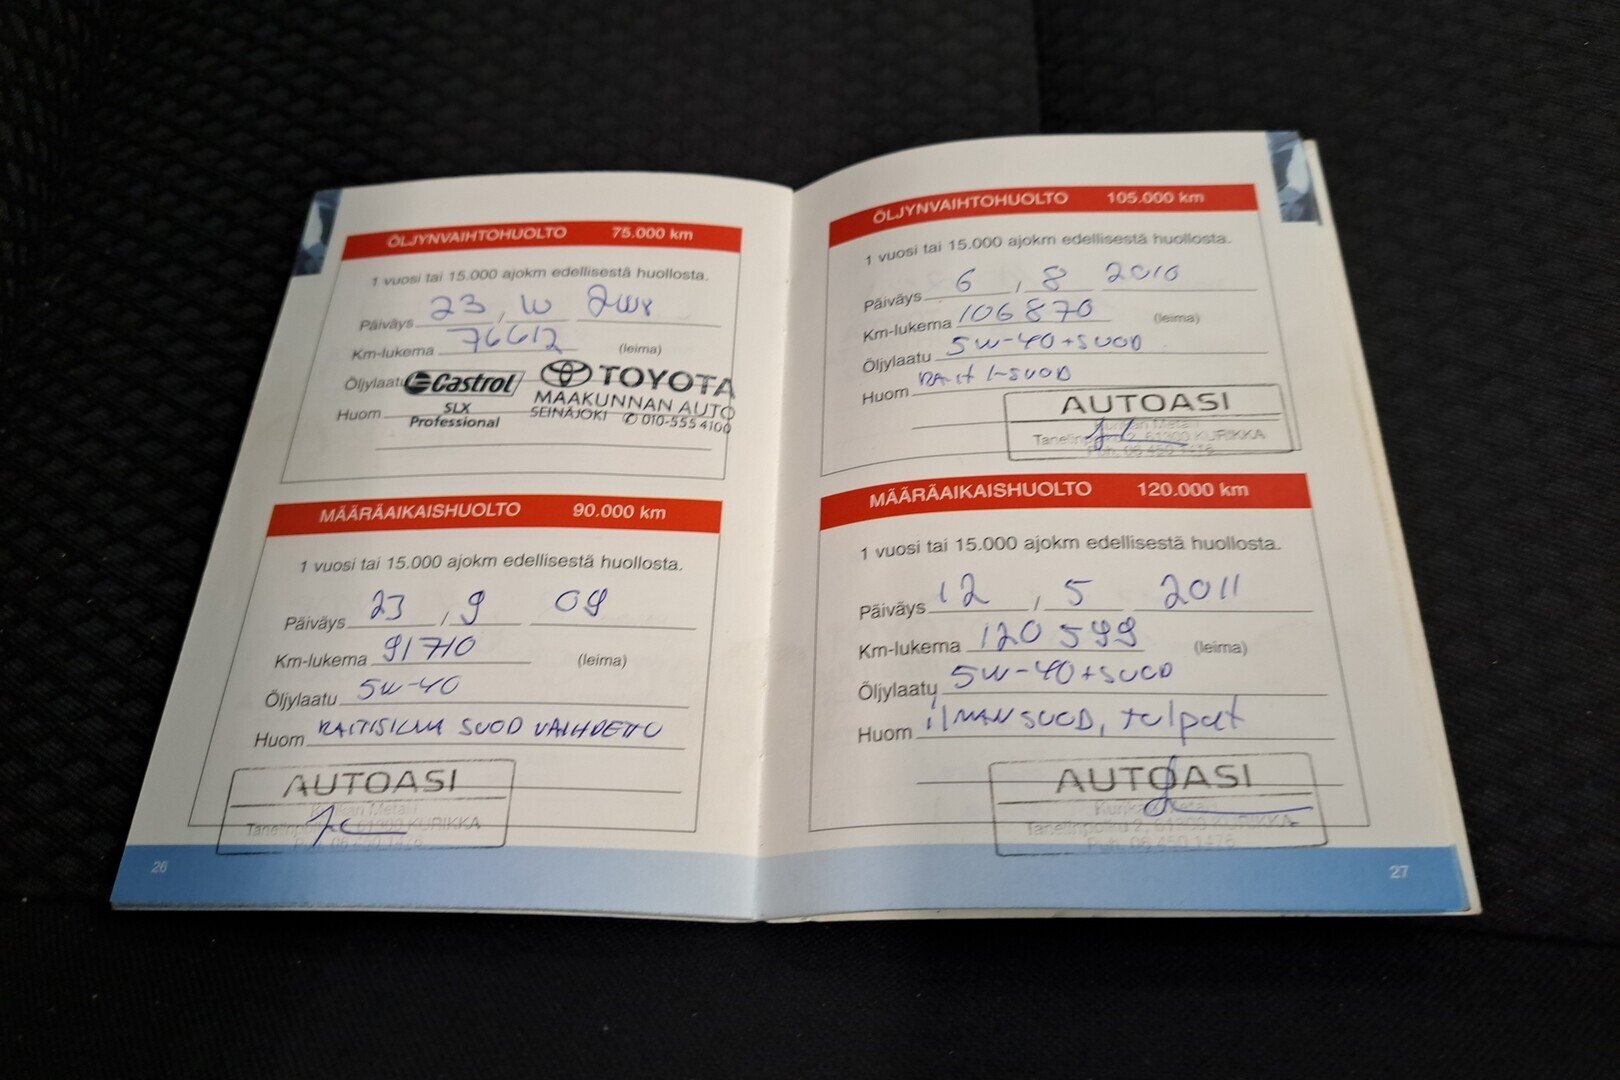 ÖLJYNVAIHTOHUOLTO 75.000 km
1 vuosi tai 15.000 ajokm edellisestä huollosta.
Päiväys 23,
Km-lukema 76612 (leima)
Öljylaatu Castrol TOYOTA
SLX MAAKUNNAN AUTO
Huom Professional SEINÄJOKI ✆ 010-555 4100
MÄÄRÄAIKAISHUOLTO 90.000 km
1 vuosi tai 15.000 ajokm edellisestä huollosta.
Päiväys 23, 9 09
Km-lukema 91710 (leima)
Öljylaatu 5W-40
Huom RAITISILMA SUOD VAIHDETTU
AUTOASI
Kurikan Metalli
Tanelinpolku 2, 61300 KURIKKA
Puh. 06 450 1476
26
ÖLJYNVAIHTOHUOLTO 105.000 km
1 vuosi tai 15.000 ajokm edellisestä huollosta.
Päiväys 6, 8 2010
Km-lukema 106870 (leima)
Öljylaatu 5W-40+SUOD
Huom RAIT I-SUOD
AUTOASI
Kurikan Metalli
Tanelinpolku 2, 61300 KURIKKA
Puh. 06 450 1476
MÄÄRÄAIKAISHUOLTO 120.000 km
1 vuosi tai 15.000 ajokm edellisestä huollosta.
Päiväys 12, 5 2011
Km-lukema 120599 (leima)
Öljylaatu 5W-40+SUOD
Huom ilMANSUOD, tulpat
AUTOASI
Kurikan Metalli
Tanelinpolku 2, 61300 KURIKKA
Puh. 06 450 1476
27